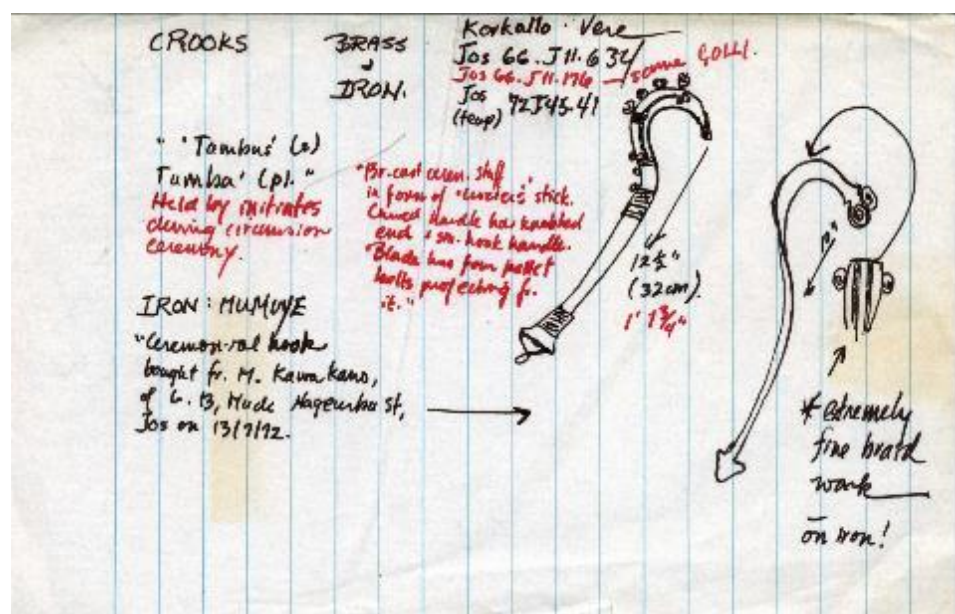 CROOKS
BRASS
&
IRON.
Korkallo · Vere
Jos 66. J11. 634
Jos 66. J11. 176 — same GOLLI.
Jos 72J45.41
(temp)
" 'Tambus' (s)
Tumba' (pl. "
Held by initiates
during circumcision
ceremony.
"Br. cast cerem. staff
in form of stick.
Curved handle has knobbed
end & sm. hook handle.
"Blade has four pellet
bells projecting fr.
it."
12½"
(32cm).
1' 1¾"
IRON: MUMUYE
"Ceremon-ial hook
bought fr. M. Kawa Kano,
of G. 13, St,
Jos on 13/7/72.
* extremely
fine braid
work
on iron!